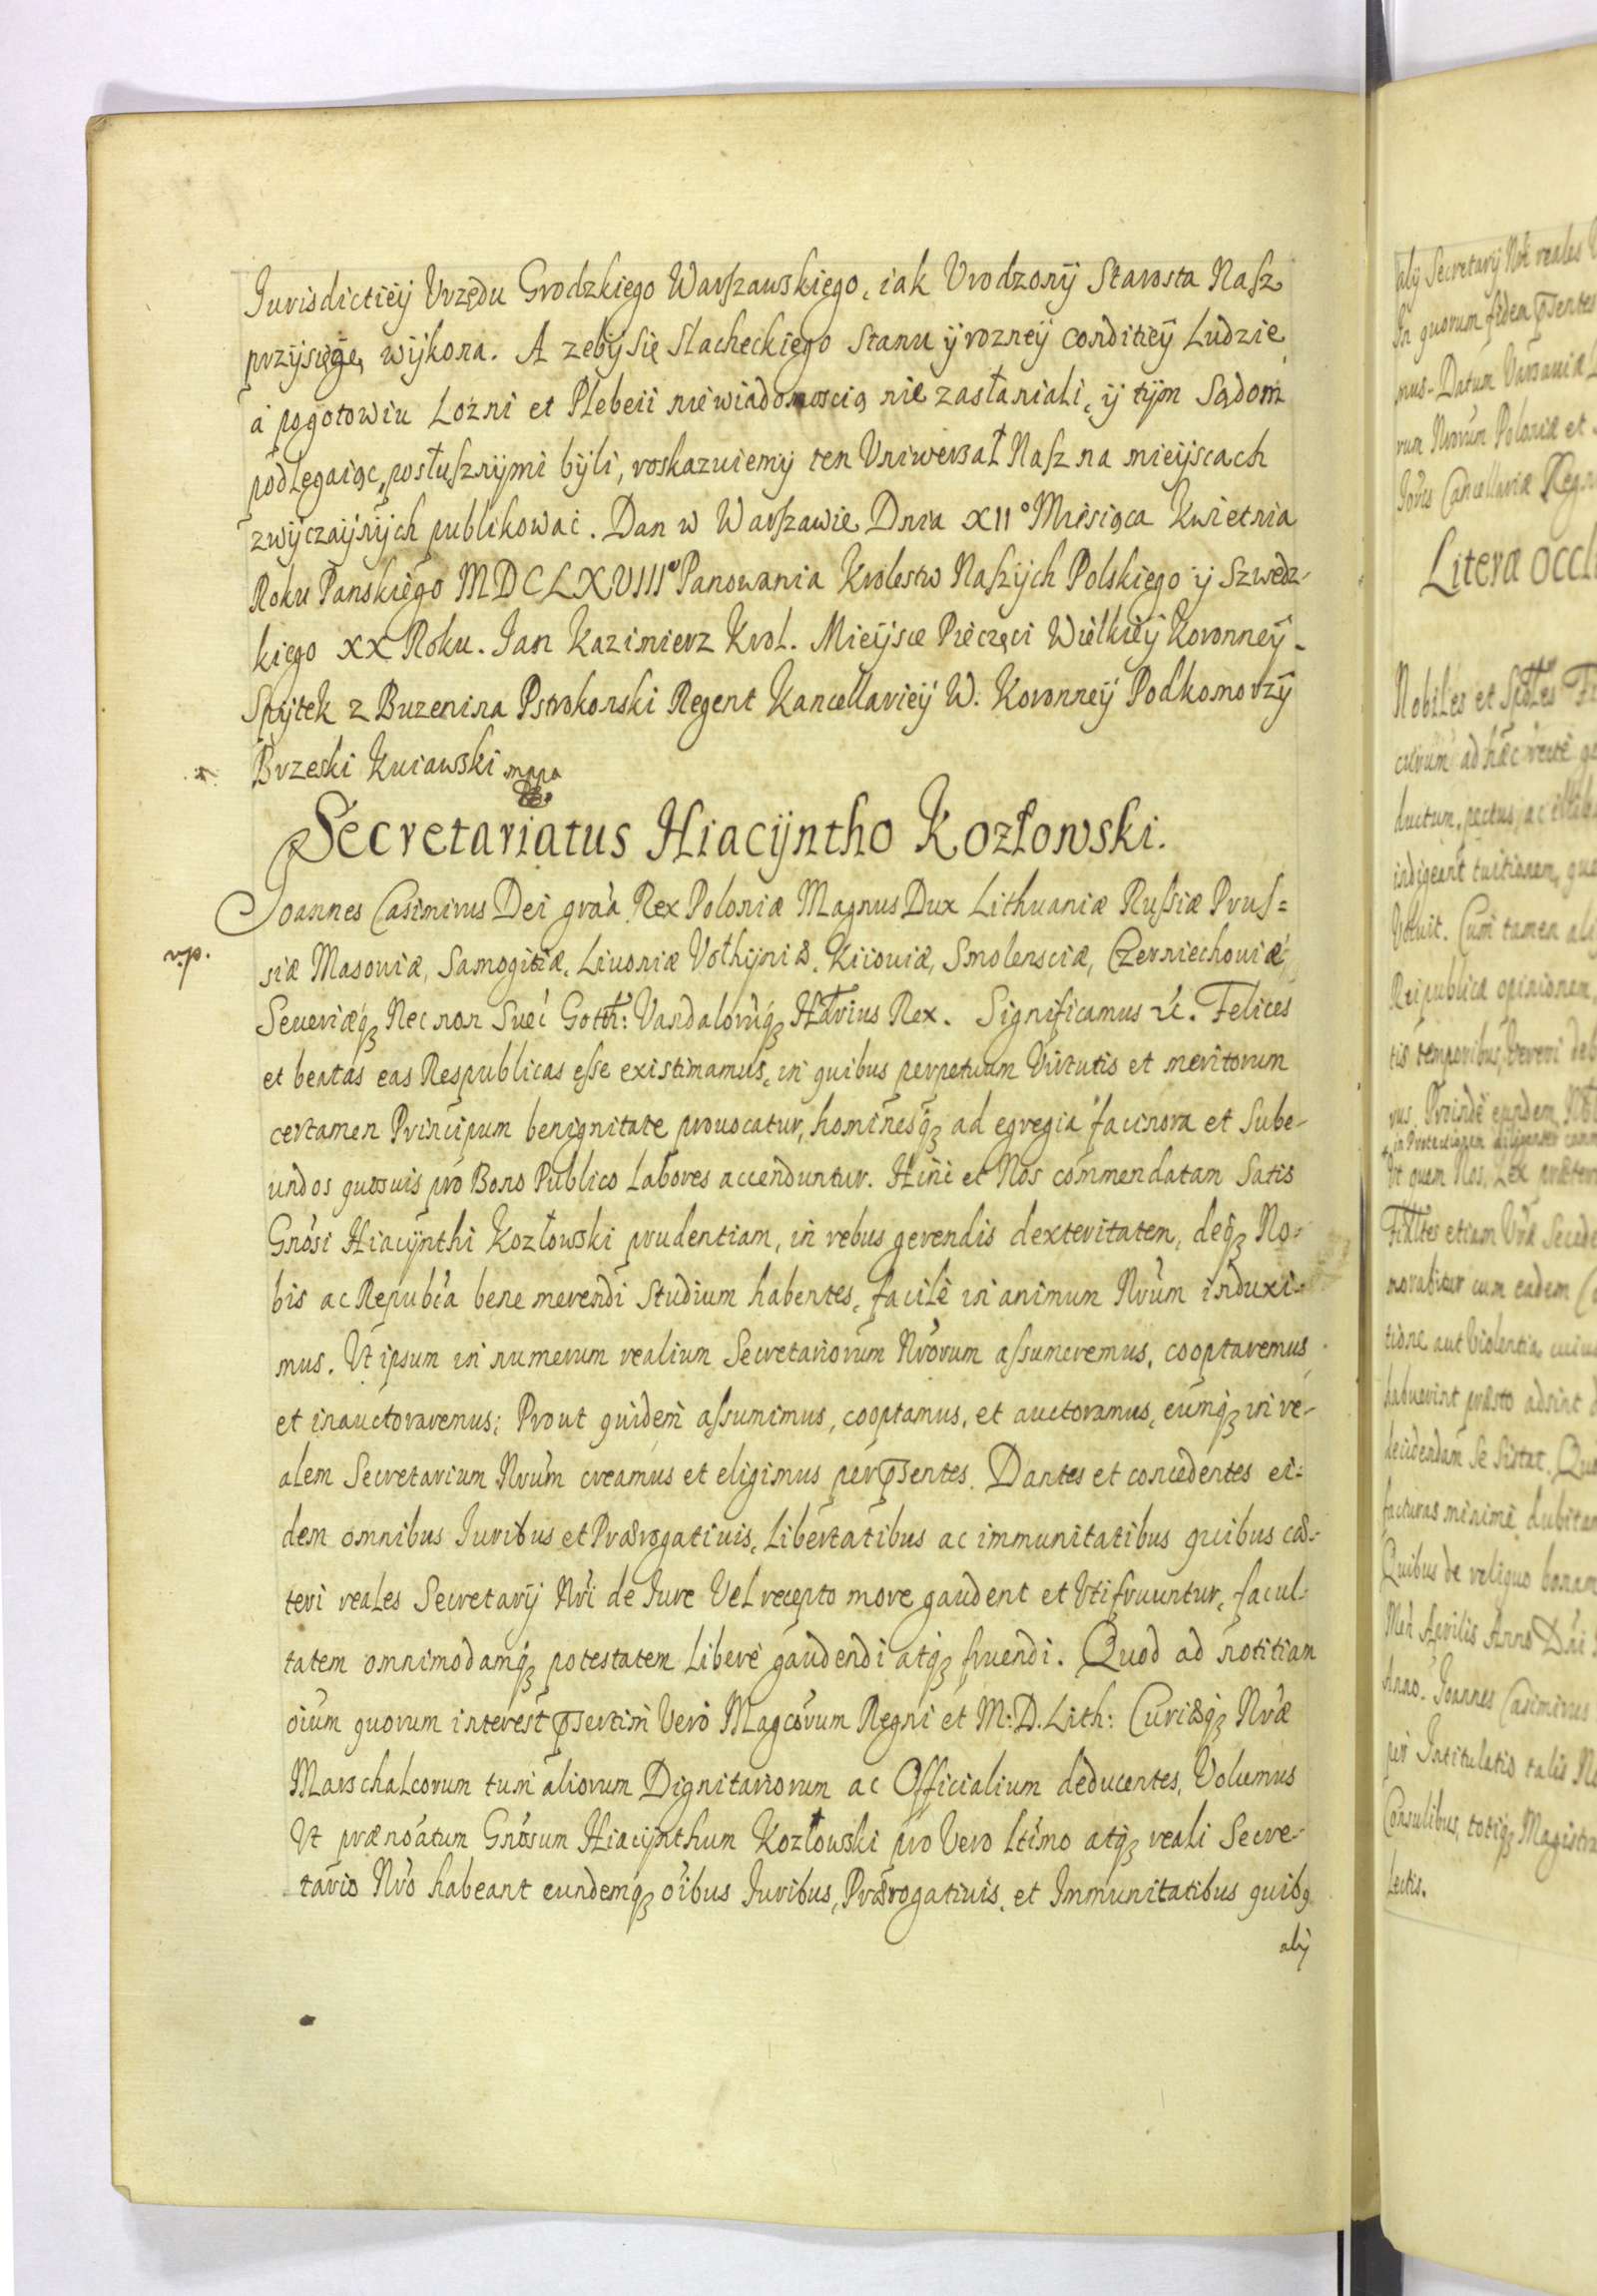 Jurisdictiey Vrzędu Grodzkiego Warszawskiego, iak Vrodzony Starosta Nasz
przysięgę wykona. A zeby się Slacheckiego Stanu y rozney conditiey Ludzie
a pogotowiu Lozni et Plebeii niewiadomoscią nie zasłaniali, y tym Sądom
podlegaiąc, posłusznymi byli, roskazuiemy ten Vniwersał Nasz na mieyscach
zwyczaynych publikować. Dan w Warszawie Dnia XII° Miesiąca Kwietnia
Roku Panskiego MDCLXVIII° Panowania Krolestw Naszych Polskiego y Szwedz-
kiego XX Roku. Jan Kazimierz Krol. Mieysce Pieczęci Wielkiey Koronney.
Spytek z Buzenina Pstrokonski Regent Kancellariey W. Koronney Podkomorzy
Brzeski Kuiawski mppa
Secretariatus Hiacyntho Kozłowski.
Joannes Casimirus Dei gra'a Rex Poloniæ Magnus Dux Lithuaniæ Russiæ Prus=
siæ Masouiæ, Samogitiæ, Liuoniæ Vothyniæ, Kiiouiæ, Smolensciæ, Czerniechouiæ
Seueriæq₃ Nec non Suec Gotth: Vandalorūq₃ Hærius Rex. Significamus &c. Felices
et beatas eas Respublicas esse existimamus, in quibus perpetuum Virtutis et meritorum
certamen Principum benignitate prouocatur, hominesq₃ ad egregia facinora et Sube-
undos quosuis pro Bono Publico Labores accenduntur. Hinc et Nos commendatam Satis
Gnosi Hiacynthi Kozłowski prudentiam, in rebus gerendis dexteritatem, deq₃ No-
bis ac Republ'a bene merendi Studium habentes, facile in animum Nr'um induxi-
mus. Vt ipsum in numerum realium Secretariorum Nr'orum assumeremus, cooptaremus
et inauctoraremus; Prout quidem assumimus, cooptamus, et auctoramus, eumq₃ in re-
alem Secretarium Nr'um creamus et eligimus per p̄sentes. Dantes et concedentes ei-
dem omnibus Juribus et Prærogatiuis, Libertatibus ac immunitatibus quibus cæ-
teri reales Secretarij Nr'i de Jure Vel recepto more gaudent et Vti fruuntur, facul-
tatem omnimodamq₃ potestatem Libere gaudendi atq₃ fruendi. Quod ad notitiam
oium quorum interest p̄sertim Vero Magcorum Regni et M: D. Lith: Curiæq₃ Nr'æ
Marschalcorum tum aliorum Dignitariorum ac Officialium deducentes, Volumus
Vt prænoatum Gnosum Hiacynthum Kozłowski pro Vero ltimo atq₃ reali Secre-
tario Nr'o habeant eundemq₃ oibus Juribus, Prærogatiuis, et Immunitatibus quibꝰ
alij
r.p.
alij Secretarij Nri reales
In quorum fidem p̄sentes
mus. Datum Varsauiæ
rum Nrorum Poloniæ et
Joris Cancellariæ Regni
Litera occl
Nobiles et
ductum, pectus, ac
indigeant tuitionem, qua
Voluit. Cum tamen ali
Reipublicæ opinionem,
tis temporibus, vereri deb
rus. Proinde eundem
Vt quem Nos, Lex
norabitur cum eadem
tione aut Violentia cuius
habuerint præsto adsint
decidendam se sistat. Qu
facturas minime dubitam
Quibus de reliquo bonam
Aprilis Anno Dni
Anno. Joannes Casimirus
per Intitulatio talis
Consulibus, totiq₃ Magistra
Lectis.